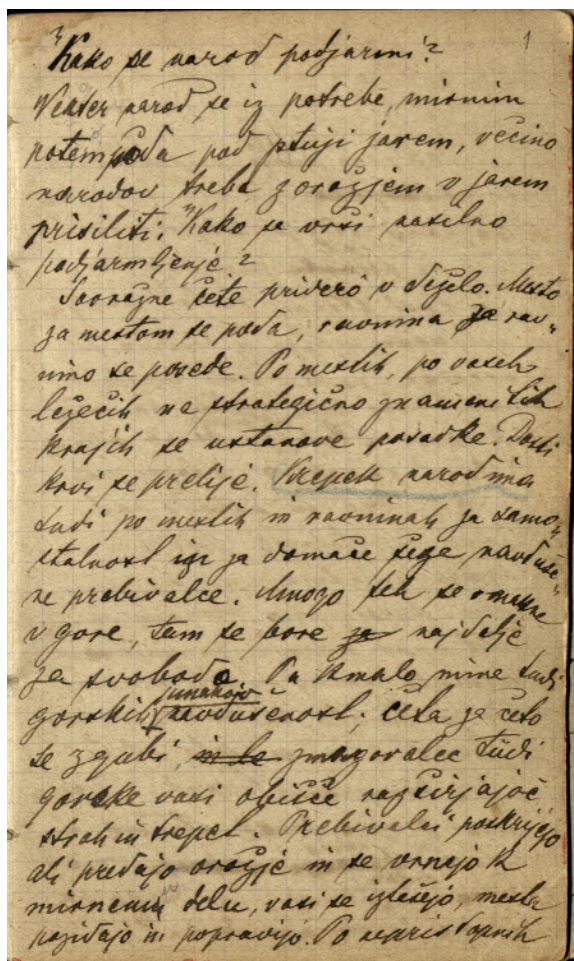 1
"Kako se narod podjarmi"?
Nekter narod se iz potrebe, mirnim
potem poda pod ptuji jarem, večino
narodov treba z orožjem v jarem
prisiliti. "Kako se vrši nasilno
podjarmljenje?
Sovražne čete prideró v deželo. Mesto
za mestom se poda, ravnina za rav-
nino se posede. Po mestih, po vaseh
ležečih na strategično znamenitih
krajih se ustanove posadke. Dosti
krvi se prelije. Krepek narod ima
tudi po mestih in ravninah za samo-
stalnost in za domače šege navduše-
ne prebivalce. Mnogo teh se omakne
v gore, tam se bore za najdalje
za svobodo. Pa kmalo mine tudi
gorskih junakov
navdušenost; četa za četo
se zgubi, in le zmagovalec tudi
gorske vasi obišče razširjajoč
strah in trepet. Prebivalci poskrijejo
ali predajo orožje in se vrnejo k
mirnemu delu, vasi se iztešejo, mesta
pozidajo in popravijo. Po nepristopnih